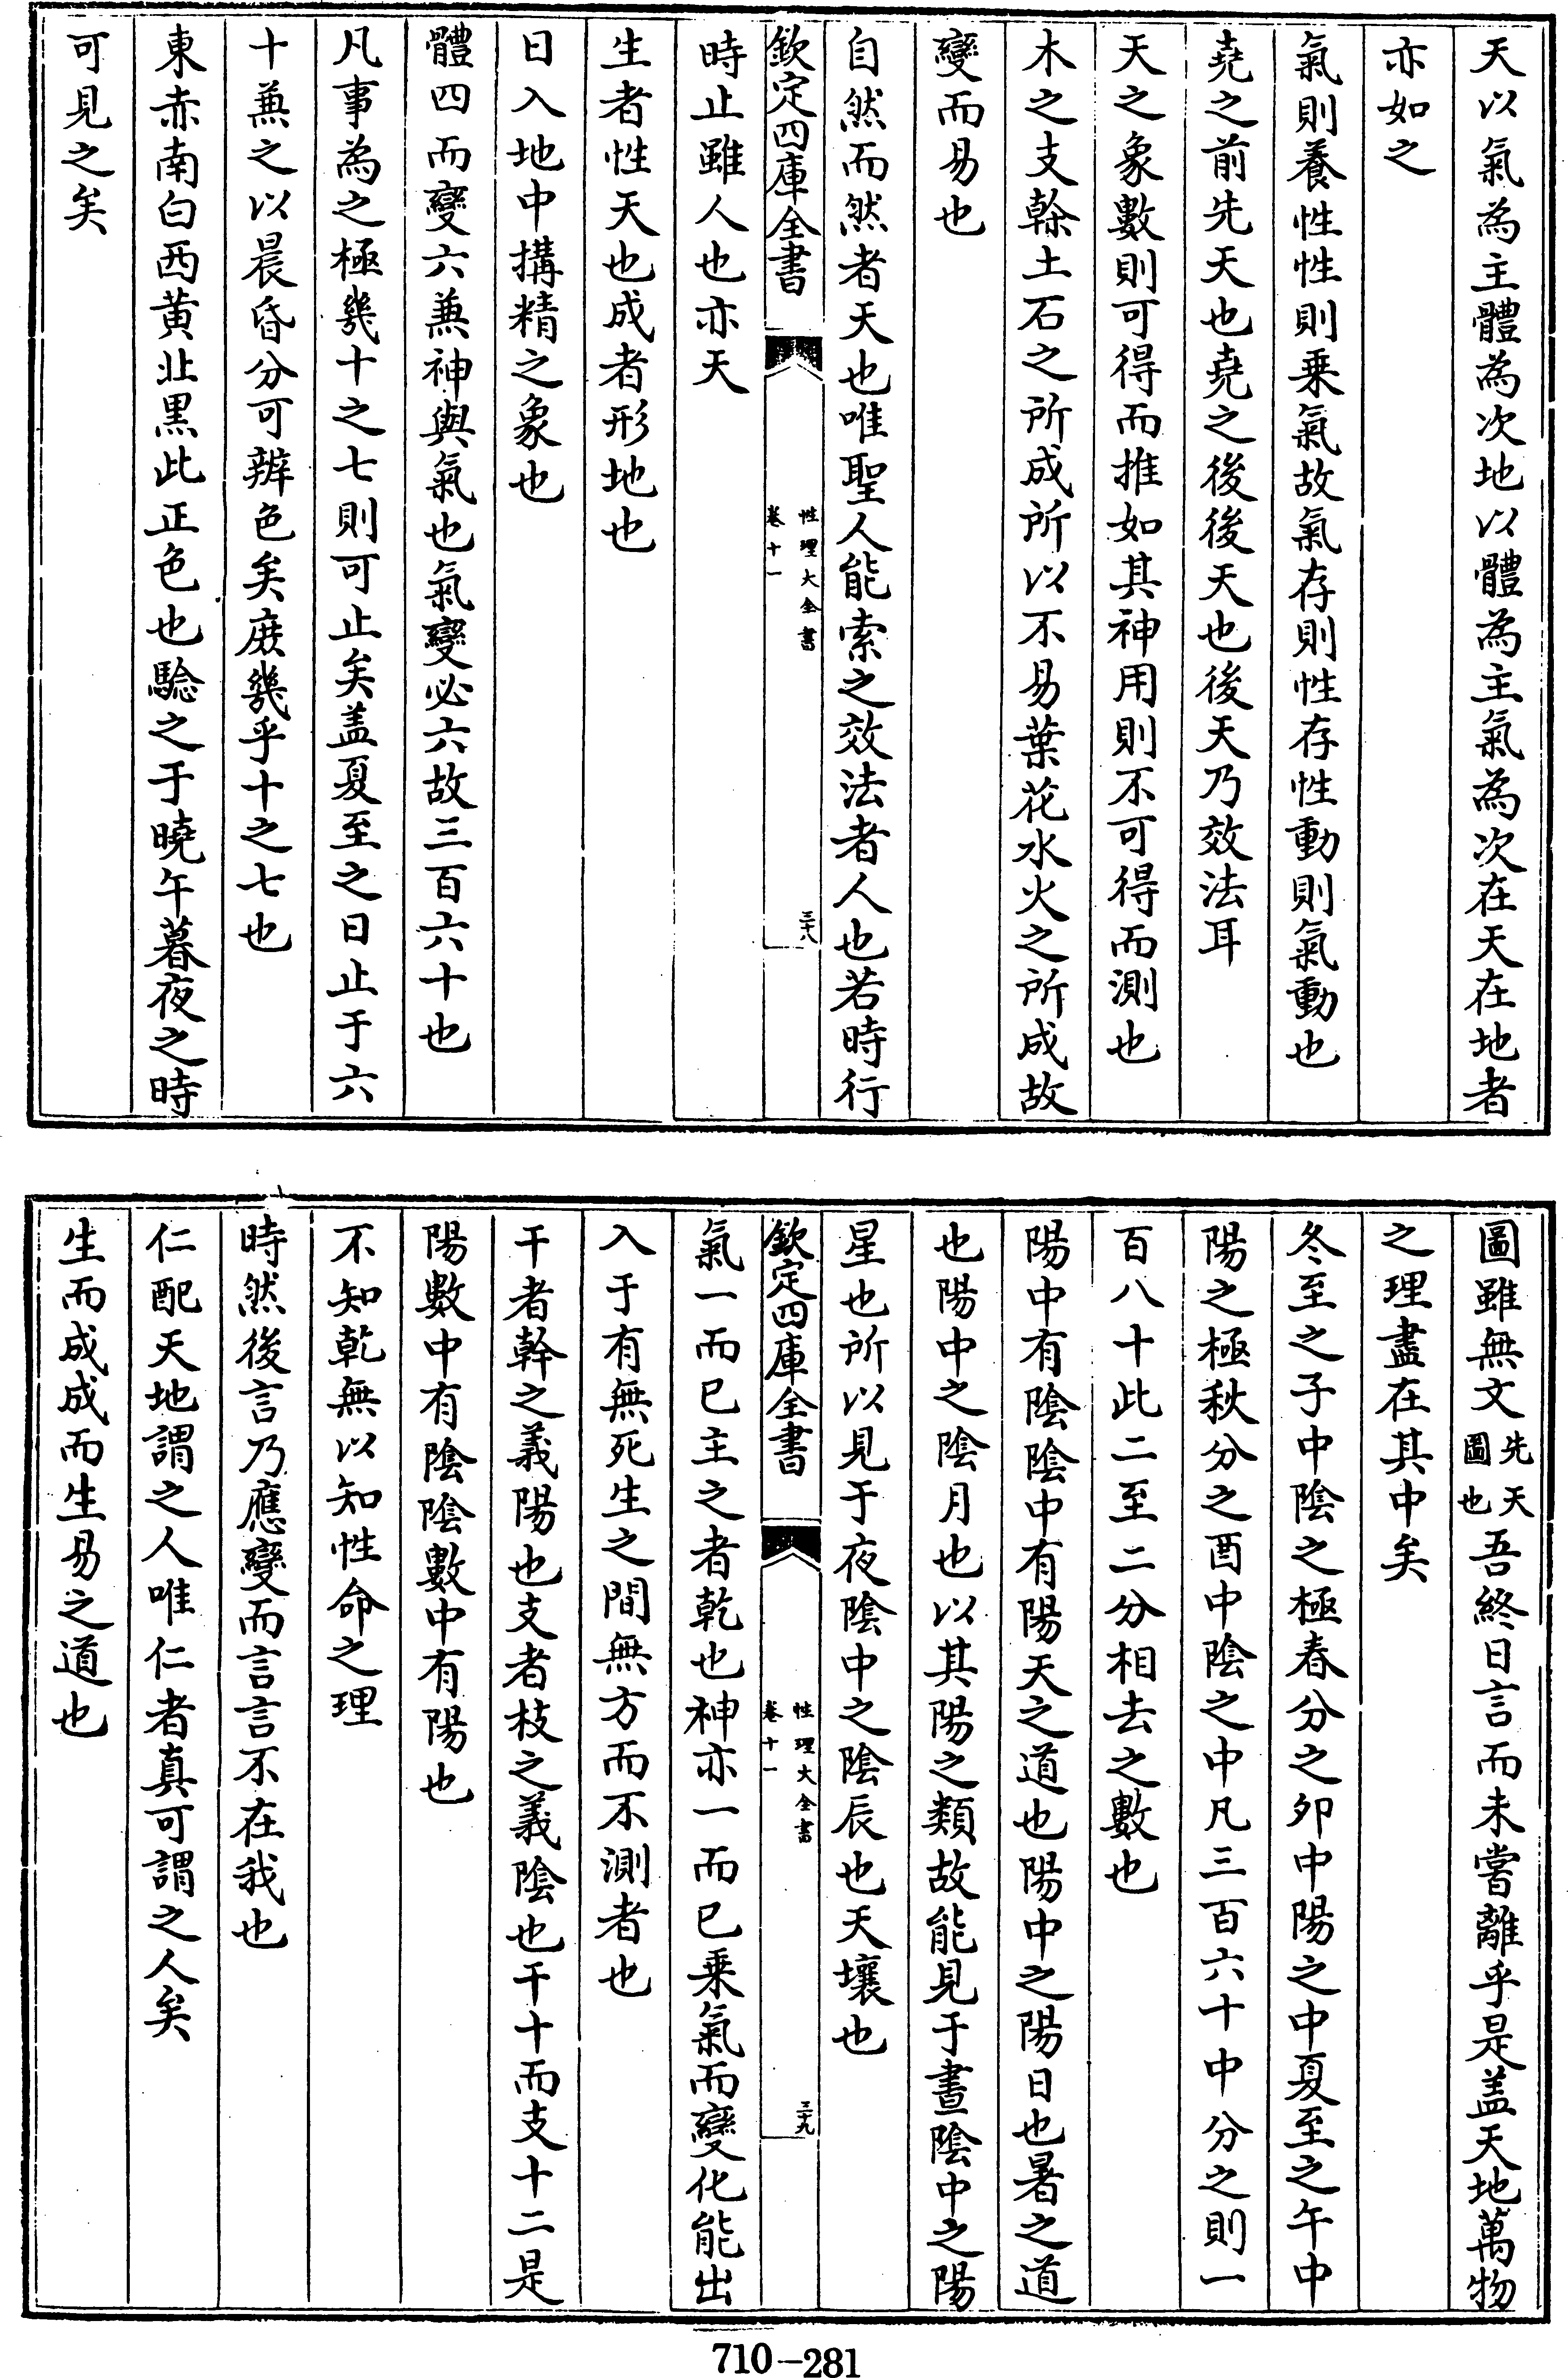 天以氣為主體為次地以體為主氣為次在天在地者
亦如之
氣則養性性則乗氣故氣存則性存性動則氣動也
堯之前先天也堯之後後天也後天乃效法耳
天之象數則可得而推如其神用則不可得而測也
木之支榦土石之所成所以不易葉花水火之所成故
變而易也
自然而然者天也唯聖人能索之效法者人也若時行
欽定四庫全書
性理大全書
卷十一
三十八
時止雖人也亦天
生者性天也成者形地也
日入地中搆精之象也
體四而變六兼神與氣也氣變必六故三百六十也
凡事為之極幾十之七則可止矣盖夏至之日止于六
十兼之以晨昏分可辨色矣庶幾乎十之七也
東赤南白西黄北黒此正色也驗之于曉午暮夜之時
可見之矣
圖雖無文先天圖也吾終日言而未嘗離乎是盖天地萬物
之理盡在其中矣
冬至之子中陰之極春分之夘中陽之中夏至之午中
陽之極秋分之酉中陰之中凡三百六十中分之則一
百八十此二至二分相去之數也
陽中有陰陰中有陽天之道也陽中之陽日也暑之道
也陽中之陰月也以其陽之類故能見于晝陰中之陽
星也所以見于夜陰中之陰辰也天壤也
欽定四庫全書
性理大全書
卷十一
三十九
氣一而已主之者乾也神亦一而已乗氣而變化能出
入于有無死生之間無方而不測者也
干者幹之義陽也支者枝之義陰也干十而支十二是
陽數中有陰陰數中有陽也
不知乾無以知性命之理
時然後言乃應變而言言不在我也
仁配天地謂之人唯仁者真可謂之人矣
生而成成而生易之道也
710-281